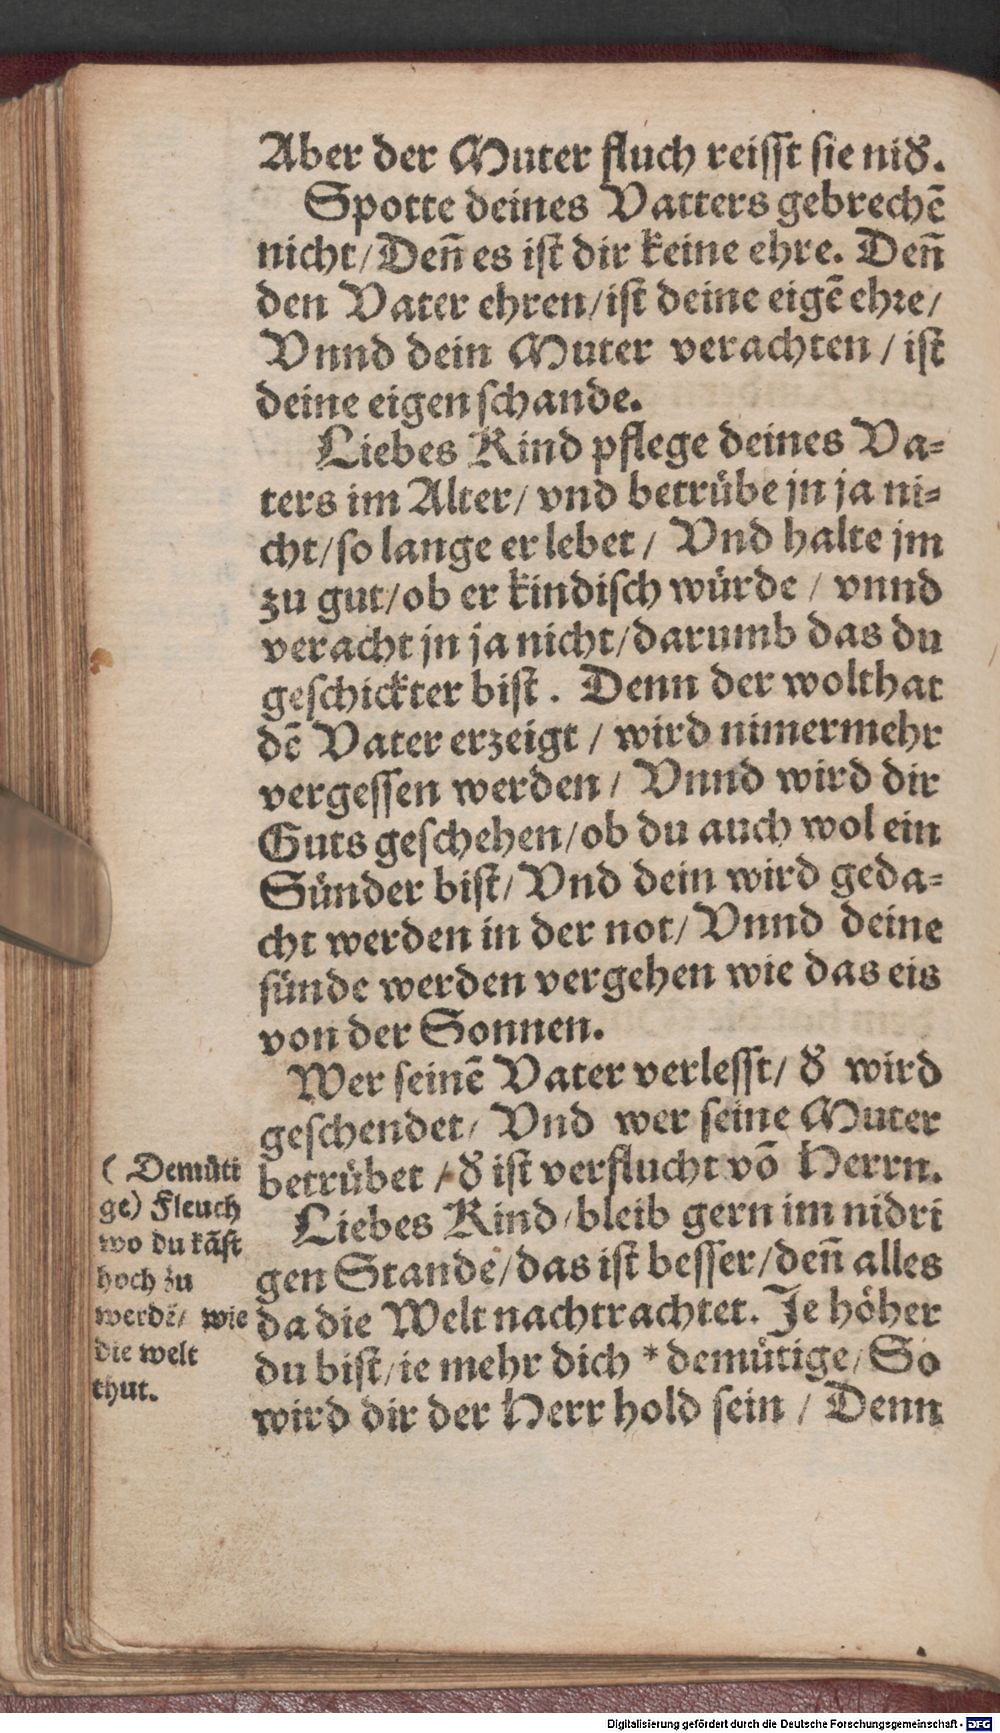 Aber der Muter fluch reisst sie nid̕.
Spotte deines Vatters gebrechē
nicht/Den̄ es ist dir keine ehre. Den̄
den Vater ehren/ist deine eigē ehre/
Vnnd dein Muter verachten / ist
deine eigen schande.
Liebes Kind pflege deines Va=
ters im Alter/ vnd betrübe jn ja ni=
cht/so lange er lebet / Vnd halte jm
zu gut/ob er kindisch würde / vnnd
veracht jn ja nicht/darumb das du
geschickter bist. Denn der wolthat
dē Vater erzeigt / wird nimermehr
vergessen werden / Vnnd wird dir
Guts geschehen/ob du auch wol ein
Sünder bist/Vnd dein wird geda=
cht werden in der not/ Vnnd deine
sünde werden vergehen wie das eis
von der Sonnen.
Wer seinē Vater verlesst/ d̕ wird
geschendet/ Vnd wer seine Muter
betrübet / d̕ ist verflucht vō Herrn.
Liebes Kind/bleib gern im nidri
gen Stande/das ist besser/den̄ alles
da die Welt nachtrachtet. Je höher
du bist/ie mehr dich * demütige/So
wird dir der Herr hold sein / Denn
( Demüti
ge) Fleuch
wo du kāst
hoch zu
werdē/ wie
die welt
thut.
Digitalisierung gefördert durch die Deutsche Forschungsgemeinschaft - DFG